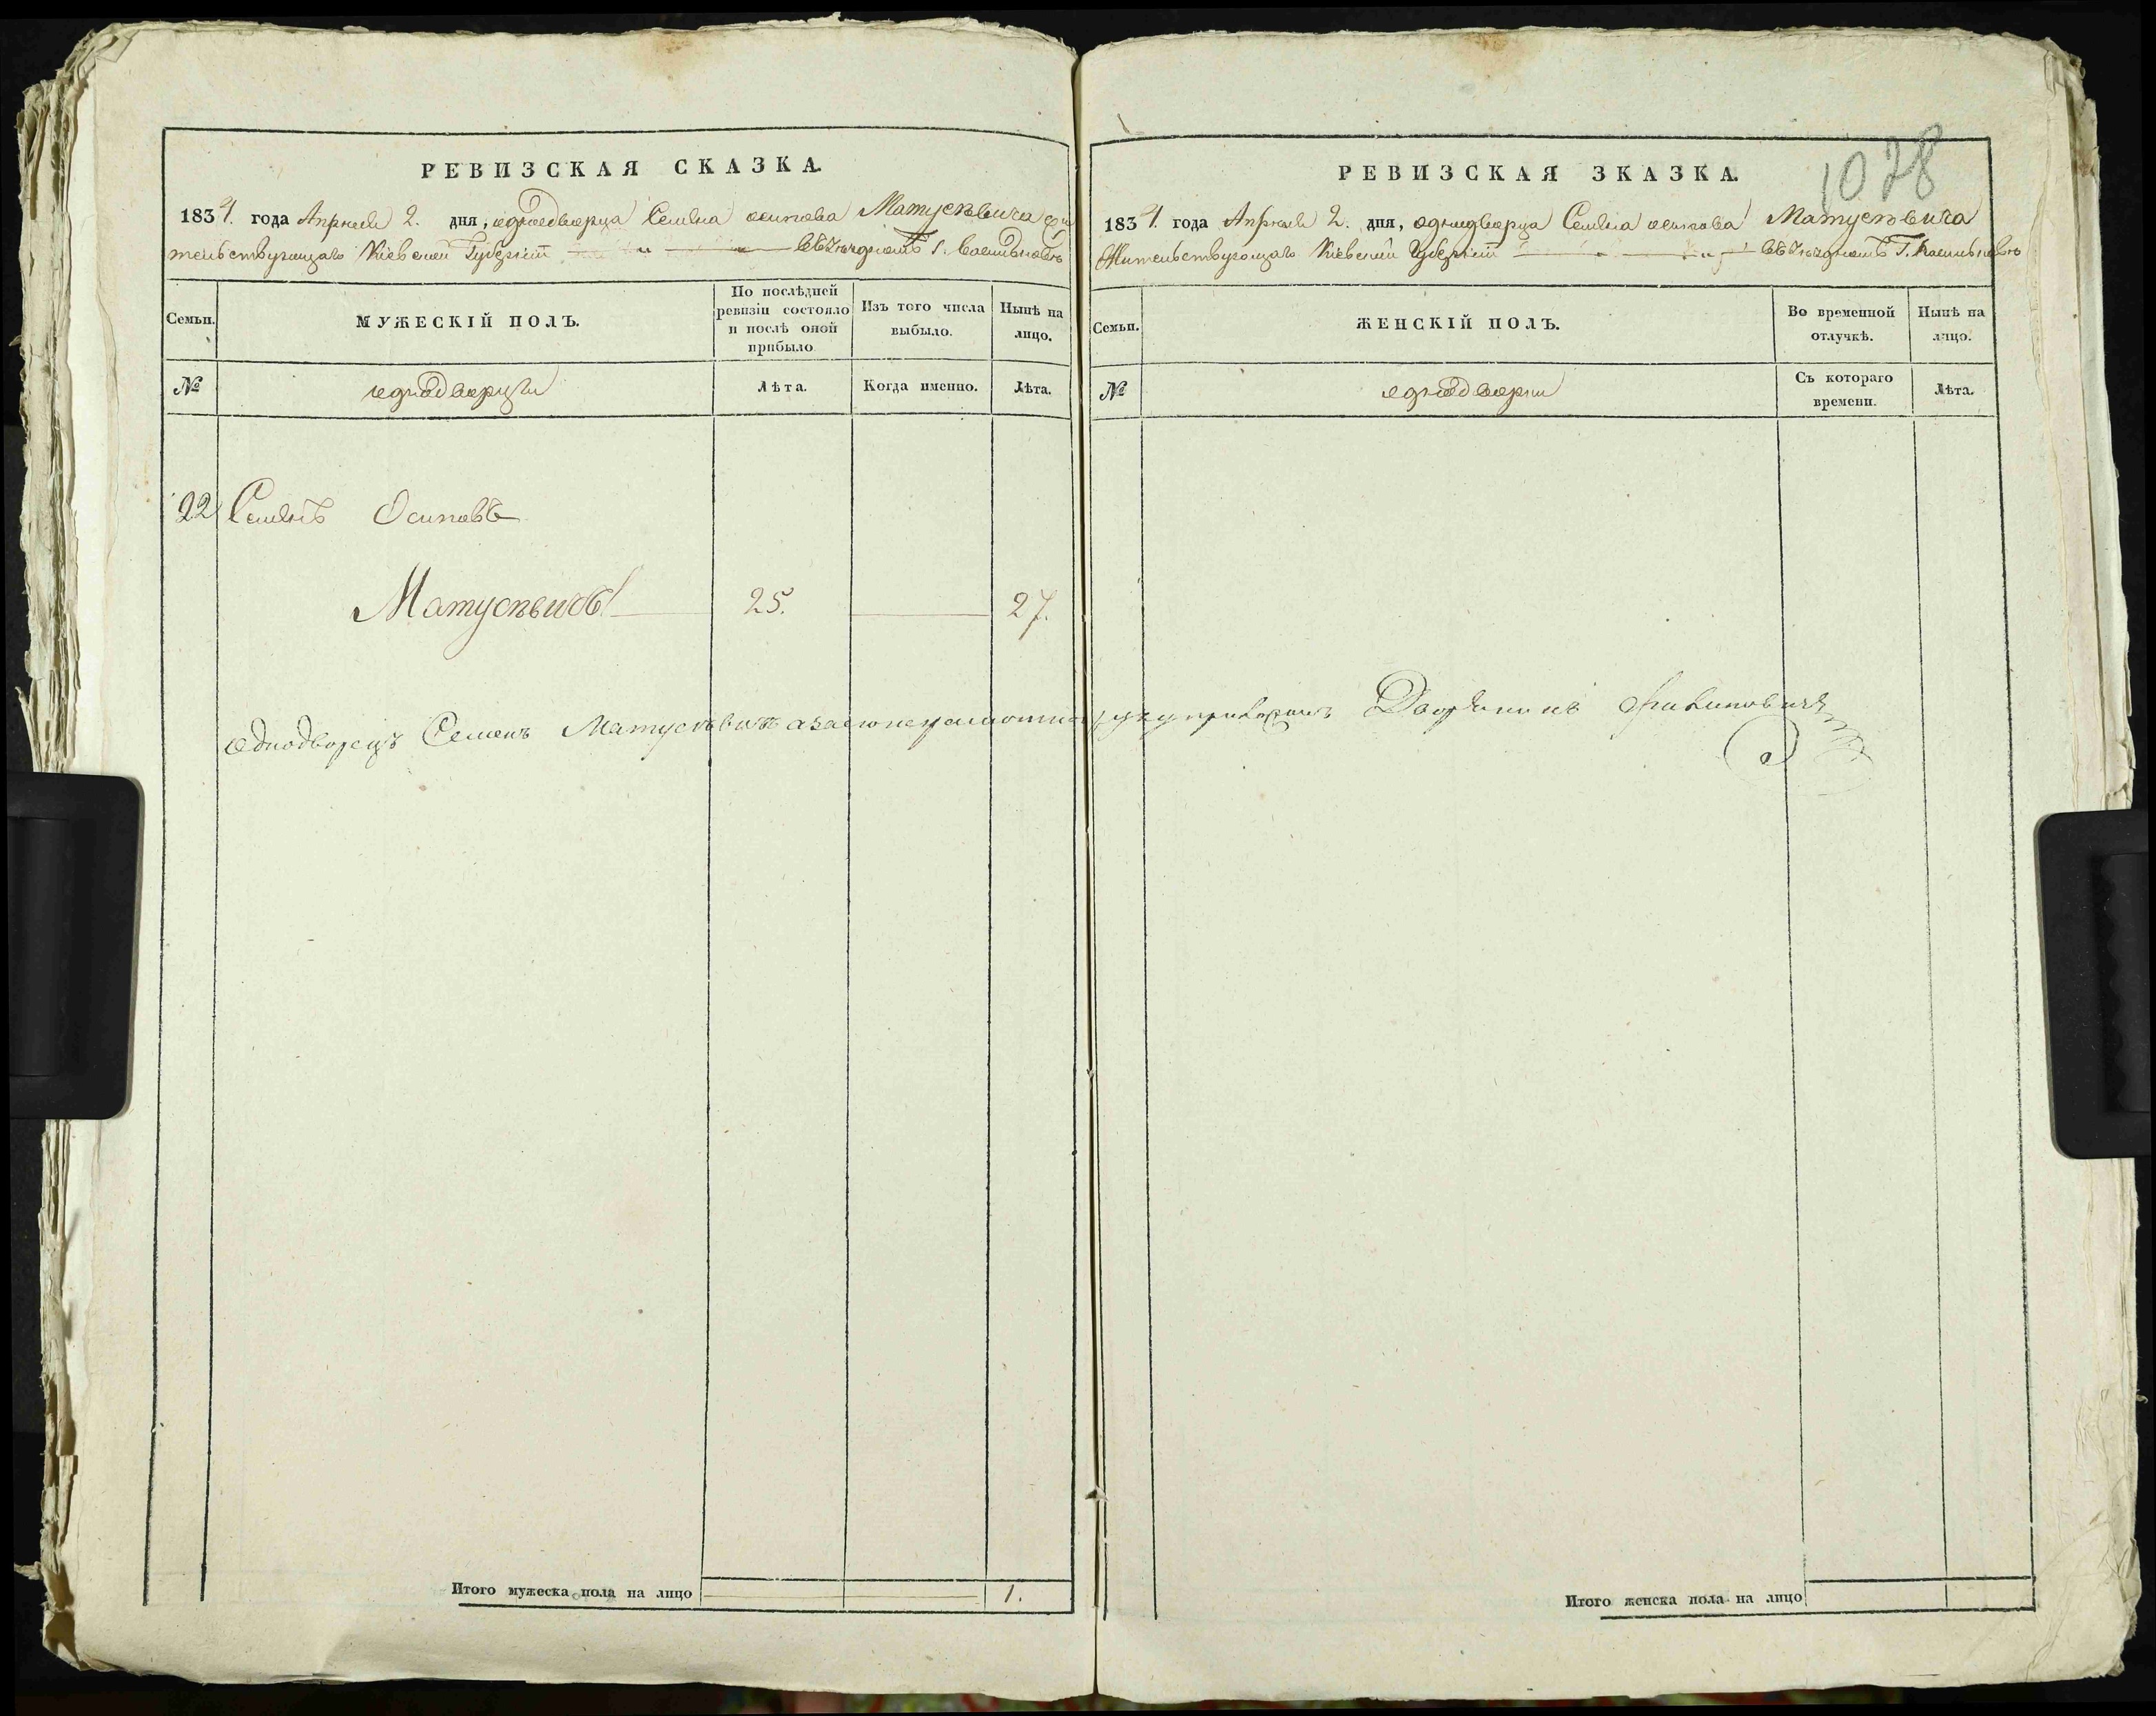 РЕВИЗСКАЯ СКАЗКА.
1834. года Апреля 2. дня, однодворца Семена осипова Матусевича жи
тельствующаго Кіевской Губерніи въ уездномъ Г. Василькове
Семьи.
МУЖЕСКІЙ ПОЛЪ.
По послѣдней ревизіи состояло и послѣ оной прибыло
Изъ того числа выбыло.
Нынѣ на лицо.
№
однодворцы
Лѣта.
Когда именно.
Лѣта.
22 Семенъ Осиповъ
Матусевичъ 25. 27.
Итого мужеска пола на лицо 1.
1028
РЕВИЗСКАЯ ЗКАЗКА.
1834. года Апреля 2. дня, однодворца Семена осипова Матусевича
Жительствующаго Кіевской Губерніи въ уездномъ Г. Василькове
Семьи.
ЖЕНСКІЙ ПОЛЪ.
Во временной отлучкѣ.
Нынѣ на лицо.
№
однодворки
Съ котораго времени.
Лѣта.
однодворецъ Семенъ Матусевичъ а за его неграмотного руку приложилъ Дворянинъ
Итого женска пола на лицо